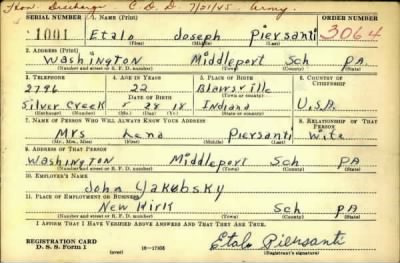 Hon. Discharge C D D 7/21/45 Army.
SERIAL NUMBER 1. NAME (Print) ORDER NUMBER
1001 Etalo Joseph Piersanti 3064
(First) (Middle) (Last)
2. ADDRESS (Print)
Washington Middleport Sch PA.
(Number and street or R. F. D. number) (Town) (County) (State)
3. TELEPHONE 4. AGE IN YEARS 5. PLACE OF BIRTH 6. COUNTRY OF CITIZENSHIP
2796 22 Blairsville
DATE OF BIRTH (Town or county)
Silver Creek 28 18 Indiana U.S.A.
(Exchange) (Number) (Mo.) (Day) (Yr.) (State or country)
7. NAME OF PERSON WHO WILL ALWAYS KNOW YOUR ADDRESS 8. RELATIONSHIP OF THAT PERSON
Mrs Lena Piersanti Wife
(Mr., Mrs., Miss) (First) (Middle) (Last)
9. ADDRESS OF THAT PERSON
Washington Middleport Sch PA
(Number and street or R. F. D. number) (Town) (County) (State)
10. EMPLOYER'S NAME
John Yakubsky
11. PLACE OF EMPLOYMENT OR BUSINESS
New Kirk Sch PA
(Number and street or R. F. D. number) (Town) (County) (State)
I AFFIRM THAT I HAVE VERIFIED ABOVE ANSWERS AND THAT THEY ARE TRUE.
REGISTRATION CARD
D. S. S. Form 1 16—17105 Etalo Piersanti
(Registrant's signature)